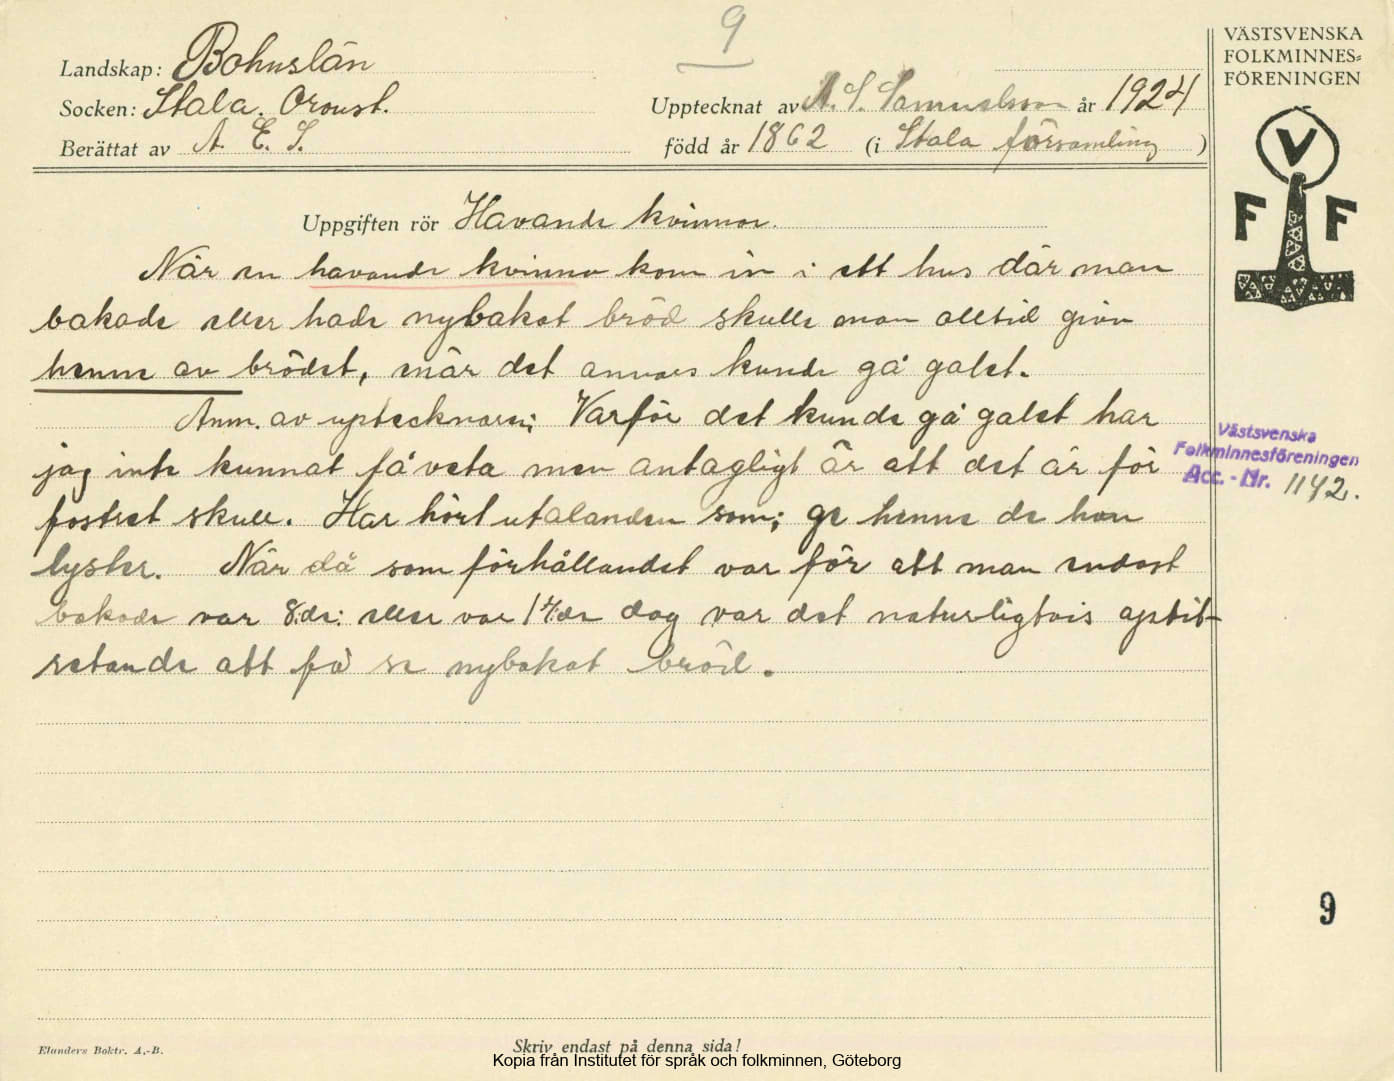 9
VÄSTSVENSKA
FOLKMINNES=
FÖRENINGEN
Landskap: Bohuslän
Socken: Stala. Oroust.
Upptecknat av A. S. Samuelsson år 1924
Berättat av A. E. S.
född år 1862 (i Stala församling)
V
F F
Uppgiften rör Havande kvinnor.
När en havande kvinna kom in i ett hus där man
bakade eller hade nybakat bröd skulle man alltid giva
henne av brödet, enär det annars kunde gå galet.
Anm. av upptecknaren; Varför det kunde gå galet har
jag inte kunnat få veta men antagligt är att det är för
fostret skull. Har hört utalanden som; ge henne de hon
lyster. När då som förhållandet var för att man endast
bakade var 8.de: eller var 14.de dag var det naturligtvis aptit-
retande att få se nybakat bröd.
Västsvenska
Folkminnesföreningen
Acc. - Nr. 1142.
9
Elanders Boktr. A.-B.
Skriv endast på denna sida!
Kopia från Institutet för språk och folkminnen, Göteborg